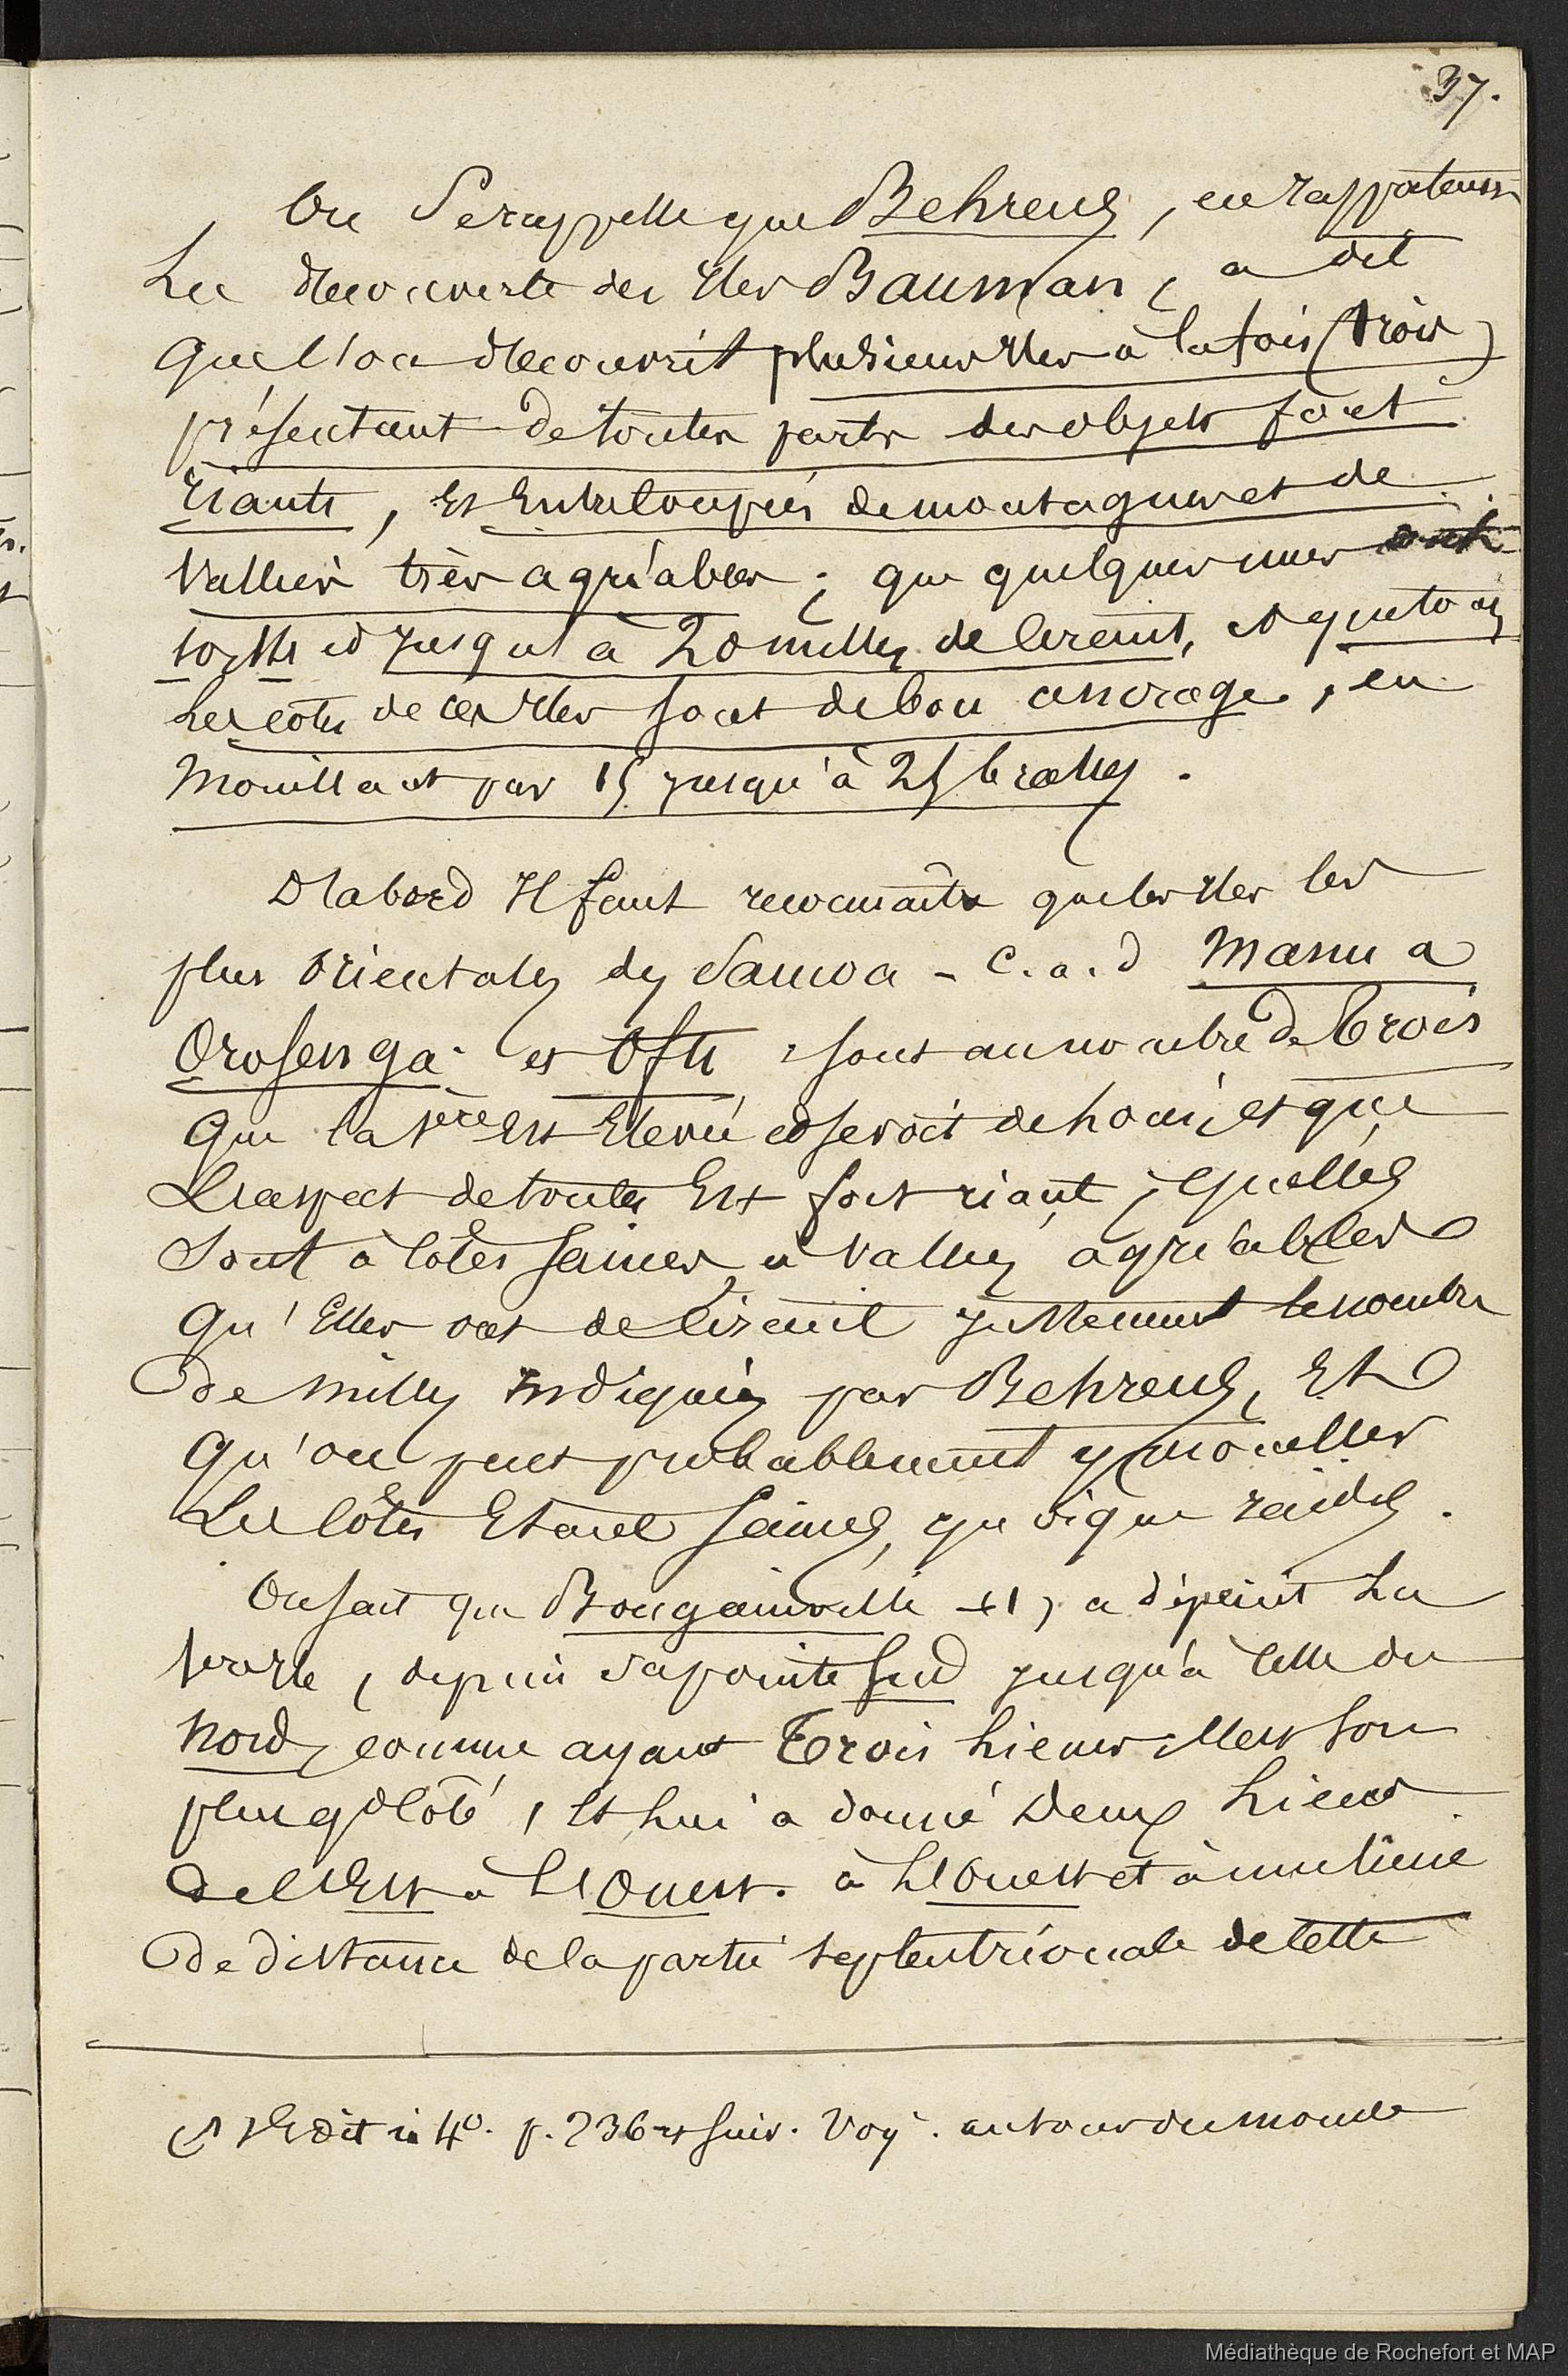 37.
On se rappelle que Behrens, en rapportant
La decouverte des Iles Bauman, a dit
que l'on decouvrit plusieurs Iles à la fois (trois)
présentant de toutes parts des objets fort
riants, Et Entrecoupées de montagnes et de
Vallées très agréables; que quelques unes ont
14 jusqu'à 20 milles de Circuit, et que toutes
Les côtes de ces Iles sont de bon ancrage, en
Mouillant par 15 jusqu'à 25 brasses.
D'abord Il faut reconnaitre que les Iles les
plus Orientales des Samoa - c.a.d Manua
Orosenga et Ofu, sont au nombre de trois
Que la 1ère Est Elevée et se voit de loin; et que
L'aspect de toutes Est fort riant; qu'elles
Sont à Côtes saines, à Vallées agréables
Qu'Elles ont de Circuit justement le nombre
de milles Indiqués par Behrens, Et
Qu'on peut probablement y mouiller
Les Côtes Etant saines, quoique raides.
On sait que Bougainville +1) a dépeint La
1ère Ile, depuis sa pointe Sud jusqu'à Celle du
Nord, comme ayant Trois Lieues; C'est son
plus gd Côté, Et Lui a donné Deux Lieues
de l'Est à L'Ouest. à L'Ouest et à une lieue
de distance de la partie Septentrionale de Cette
+1 Edit in 4°. p. 236 et suiv. Voy. autour du monde
Médiathèque de Rochefort et MAP